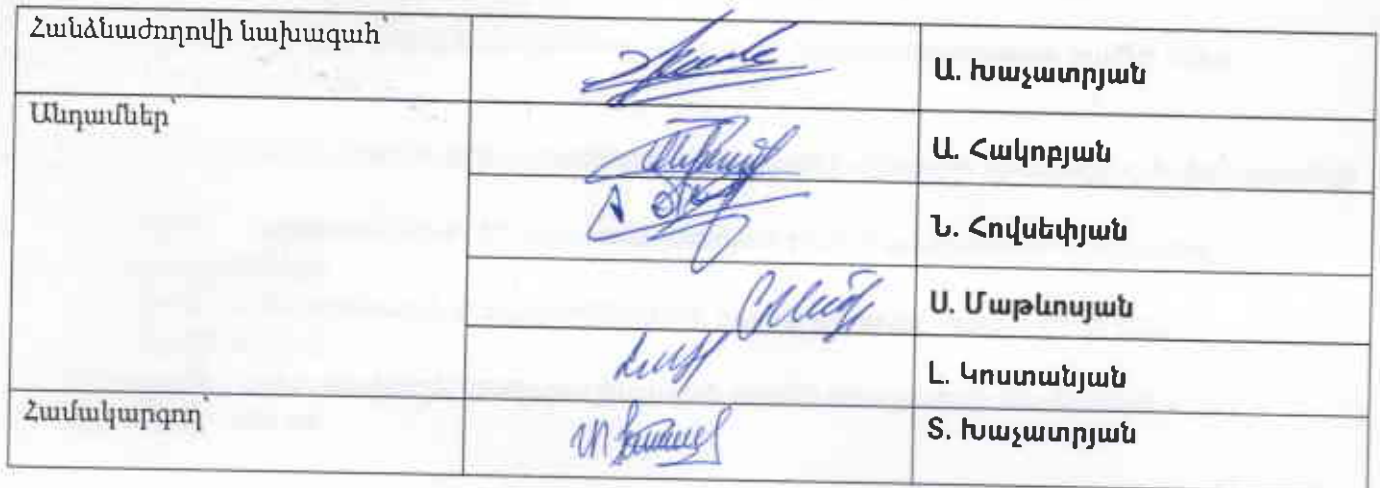 Հանձնաժողովի նախագահ՝
Ա. Խաչատրյան
Անդամներ՝
Ա. Հակոբյան
Ն. Հովսեփյան
Ս. Մաթևոսյան
Լ. Կոստանյան
Համակարգող՝
Տ. Խաչատրյան